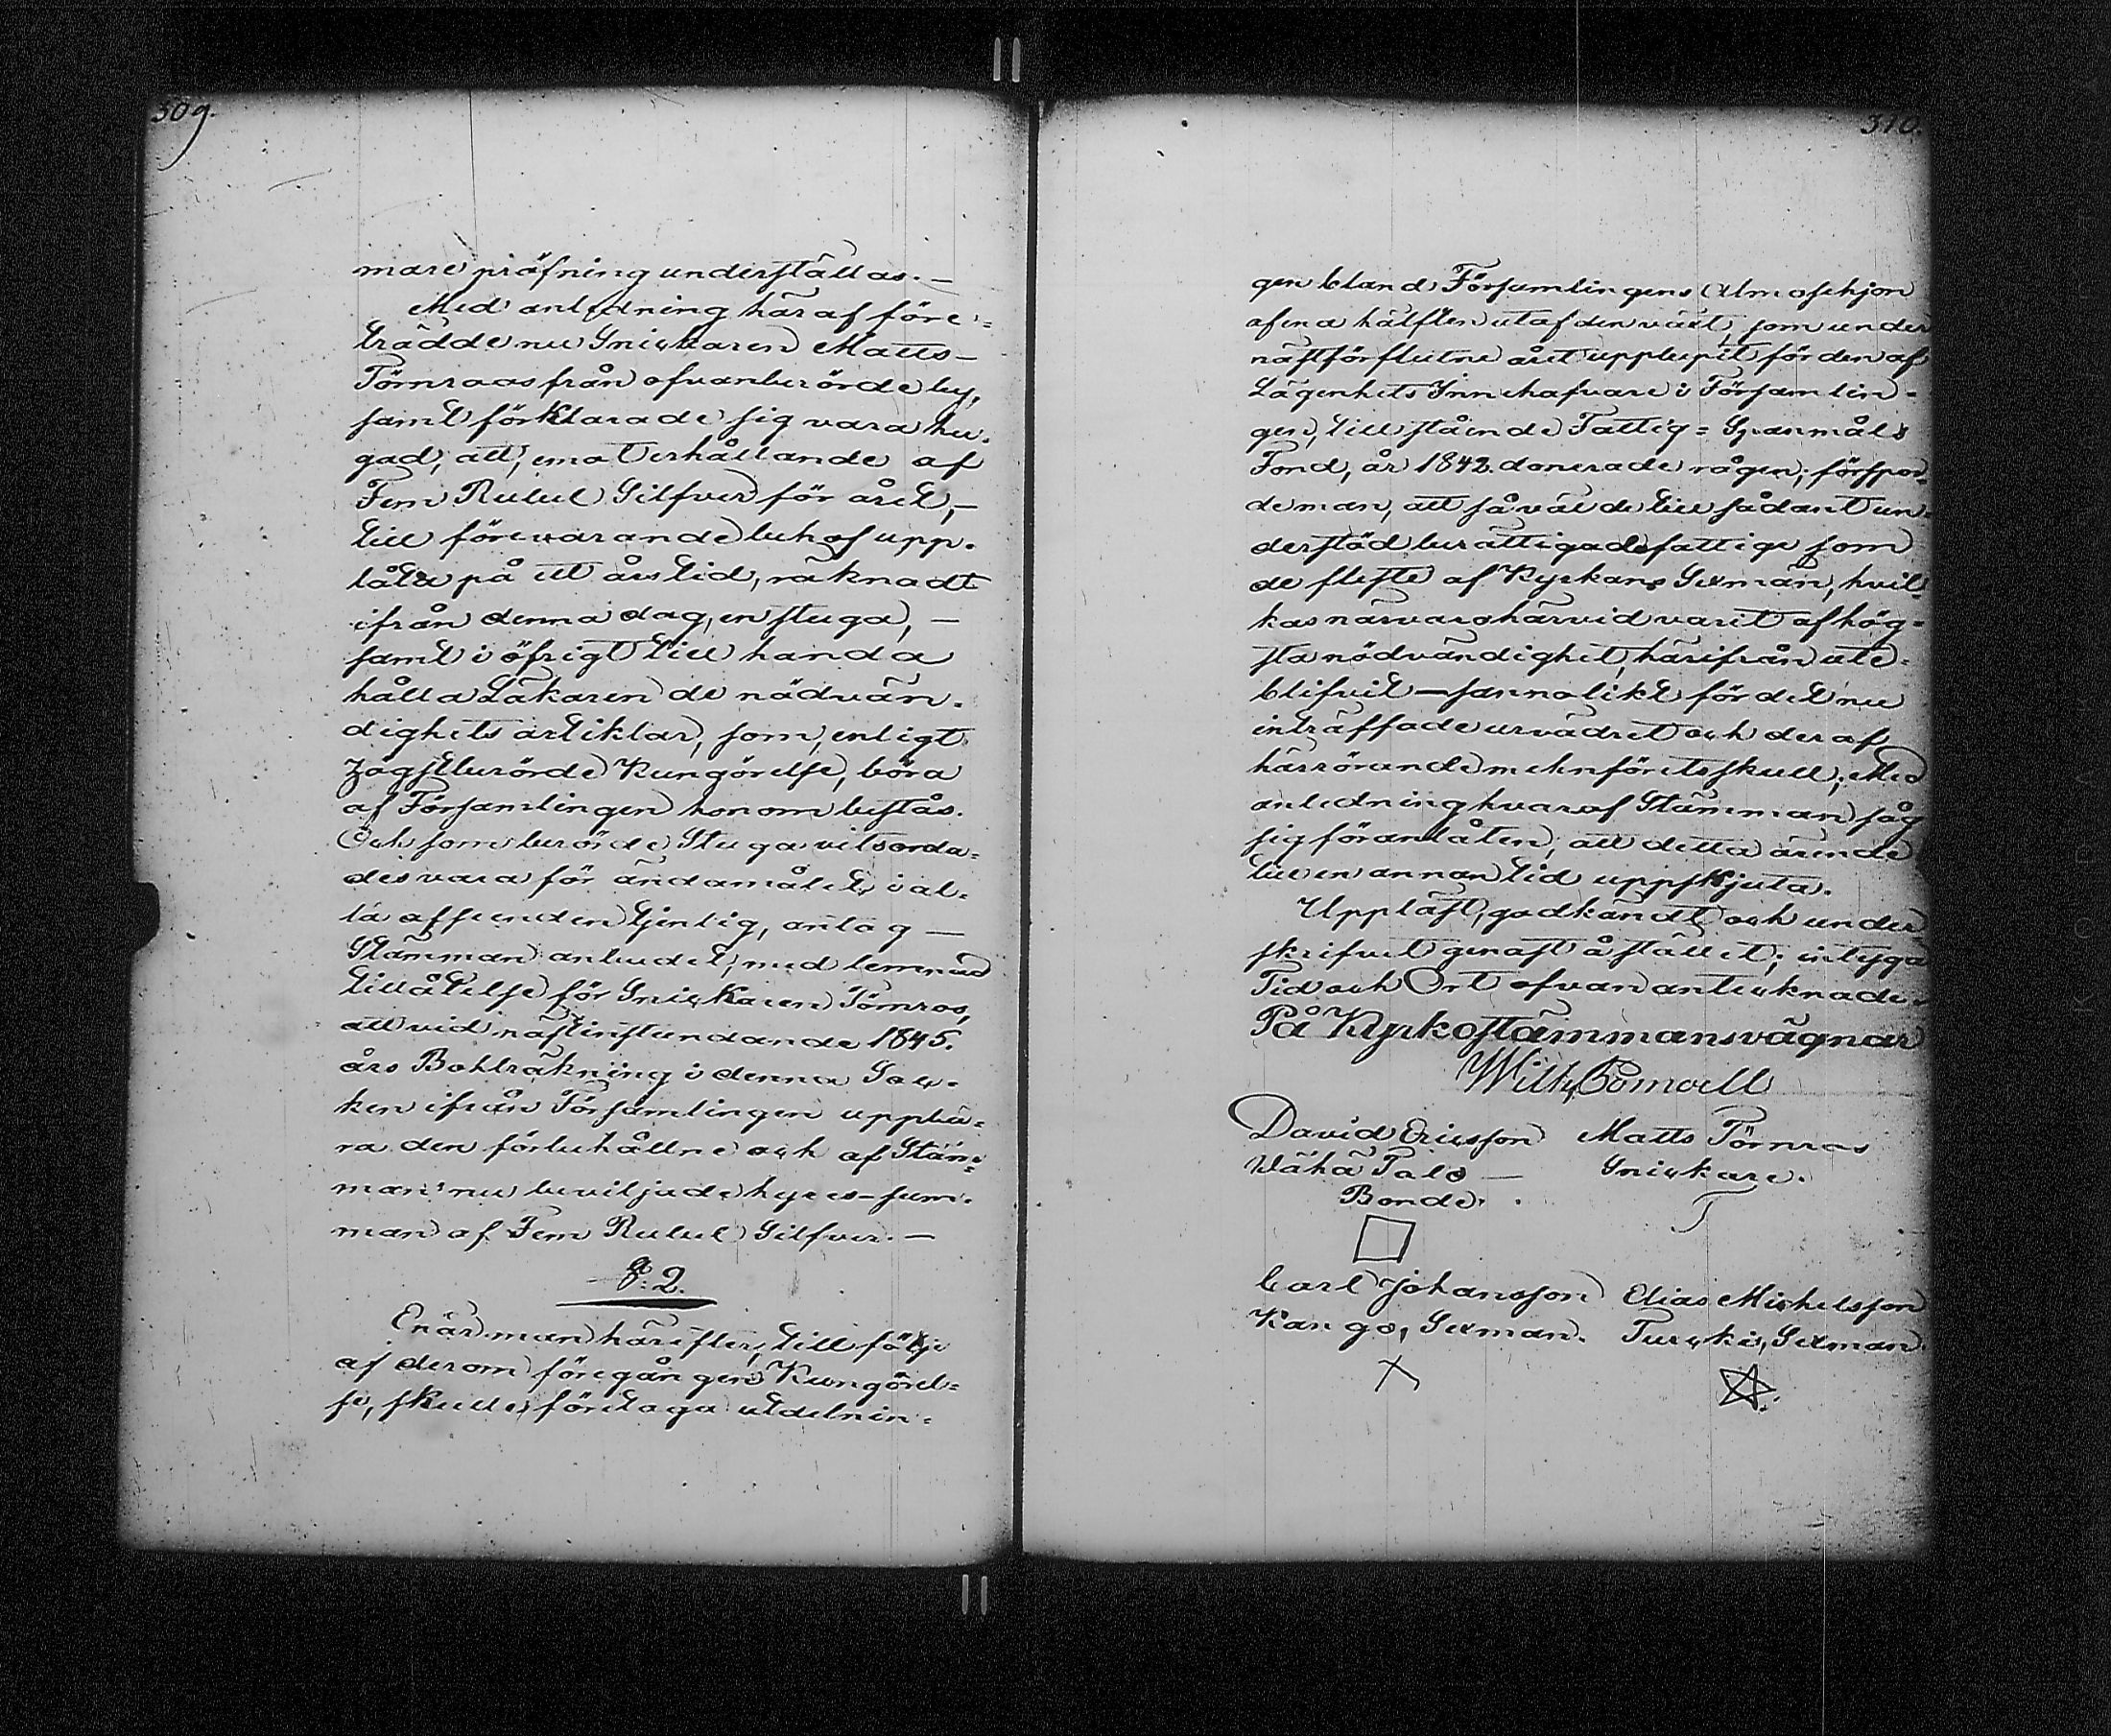 309.
mare pröfning underställas. —
Med anledning häraf före=
trädde nu Snickaren Matts —
Törnroos från ofvanberörde by,
samt förklarade sig vara hu-
gad, att, emot erhållande af
Fem Rubel Silfver för året, —
till förevarande behof upp-
låta på ett års tid, räknadt
ifrån denna dag, en stuga, —
samt i öfrigt till handa
hålla Läkaren de nödvän-
dighets artiklar, som, enligt
högstberörde Kungörelse, böra
af Församlingen honom bestås.
Och som berörde Stuga vitsorda=
des vara för ändamålet i al-
la afseenden tjenlig, antog —
Stämman anbudet, med lemnad
tillåtelse för Snickaren Törnros,
att vid nästinstundande 1845.
års Bohlräkning i denna Soc-
ken ifrån Församlingen uppbä=
ra den förbehållne och af Stäm=
man nu beviljade hyres-sum-
man af Fem Rubel Silfver. —
§. 2.
Enär man härefter, till följe
af derom föregången Kungörel=
se, skulle företaga utdelnin=
310.
gen bland Församlingens Almosehjon
af ena hälften utaf den växt, som under
nästförflutne året upplupit för den af
Lägenhets Innehafvare i Församlin-
gen, till stående Fattig=Spanmåls
Fond, år 1842. donerade rågen, förspor-
de man, att så väl de till sådant un-
derstöd berättigade fattige som
de fleste af Kyrkans Sexmän, hvil-
kas närvaro härvid varit af hög-
sta nödvändighet, härifrån ute-
blifvit — sannolikt för det nu
inträffade urvädret och deraf
härrörande menföretsskull; Med
anledning hvaraf Stämman såg
sig föranlåten, att detta ärende
till en annan tid uppskjuta.
Uppläst, godkändt och under
skrifvet genast å stället; intyga
Tid och Ort ofvan antecknade.
På Kyrkostämmans vägnar
Wilh.
David Ericsson Matts Törnros
Vähä Talo — Snickare.
Bonde.
Carl Johansson Elias Michelsson
Kangas, Sexman. Turcki, Sexman.